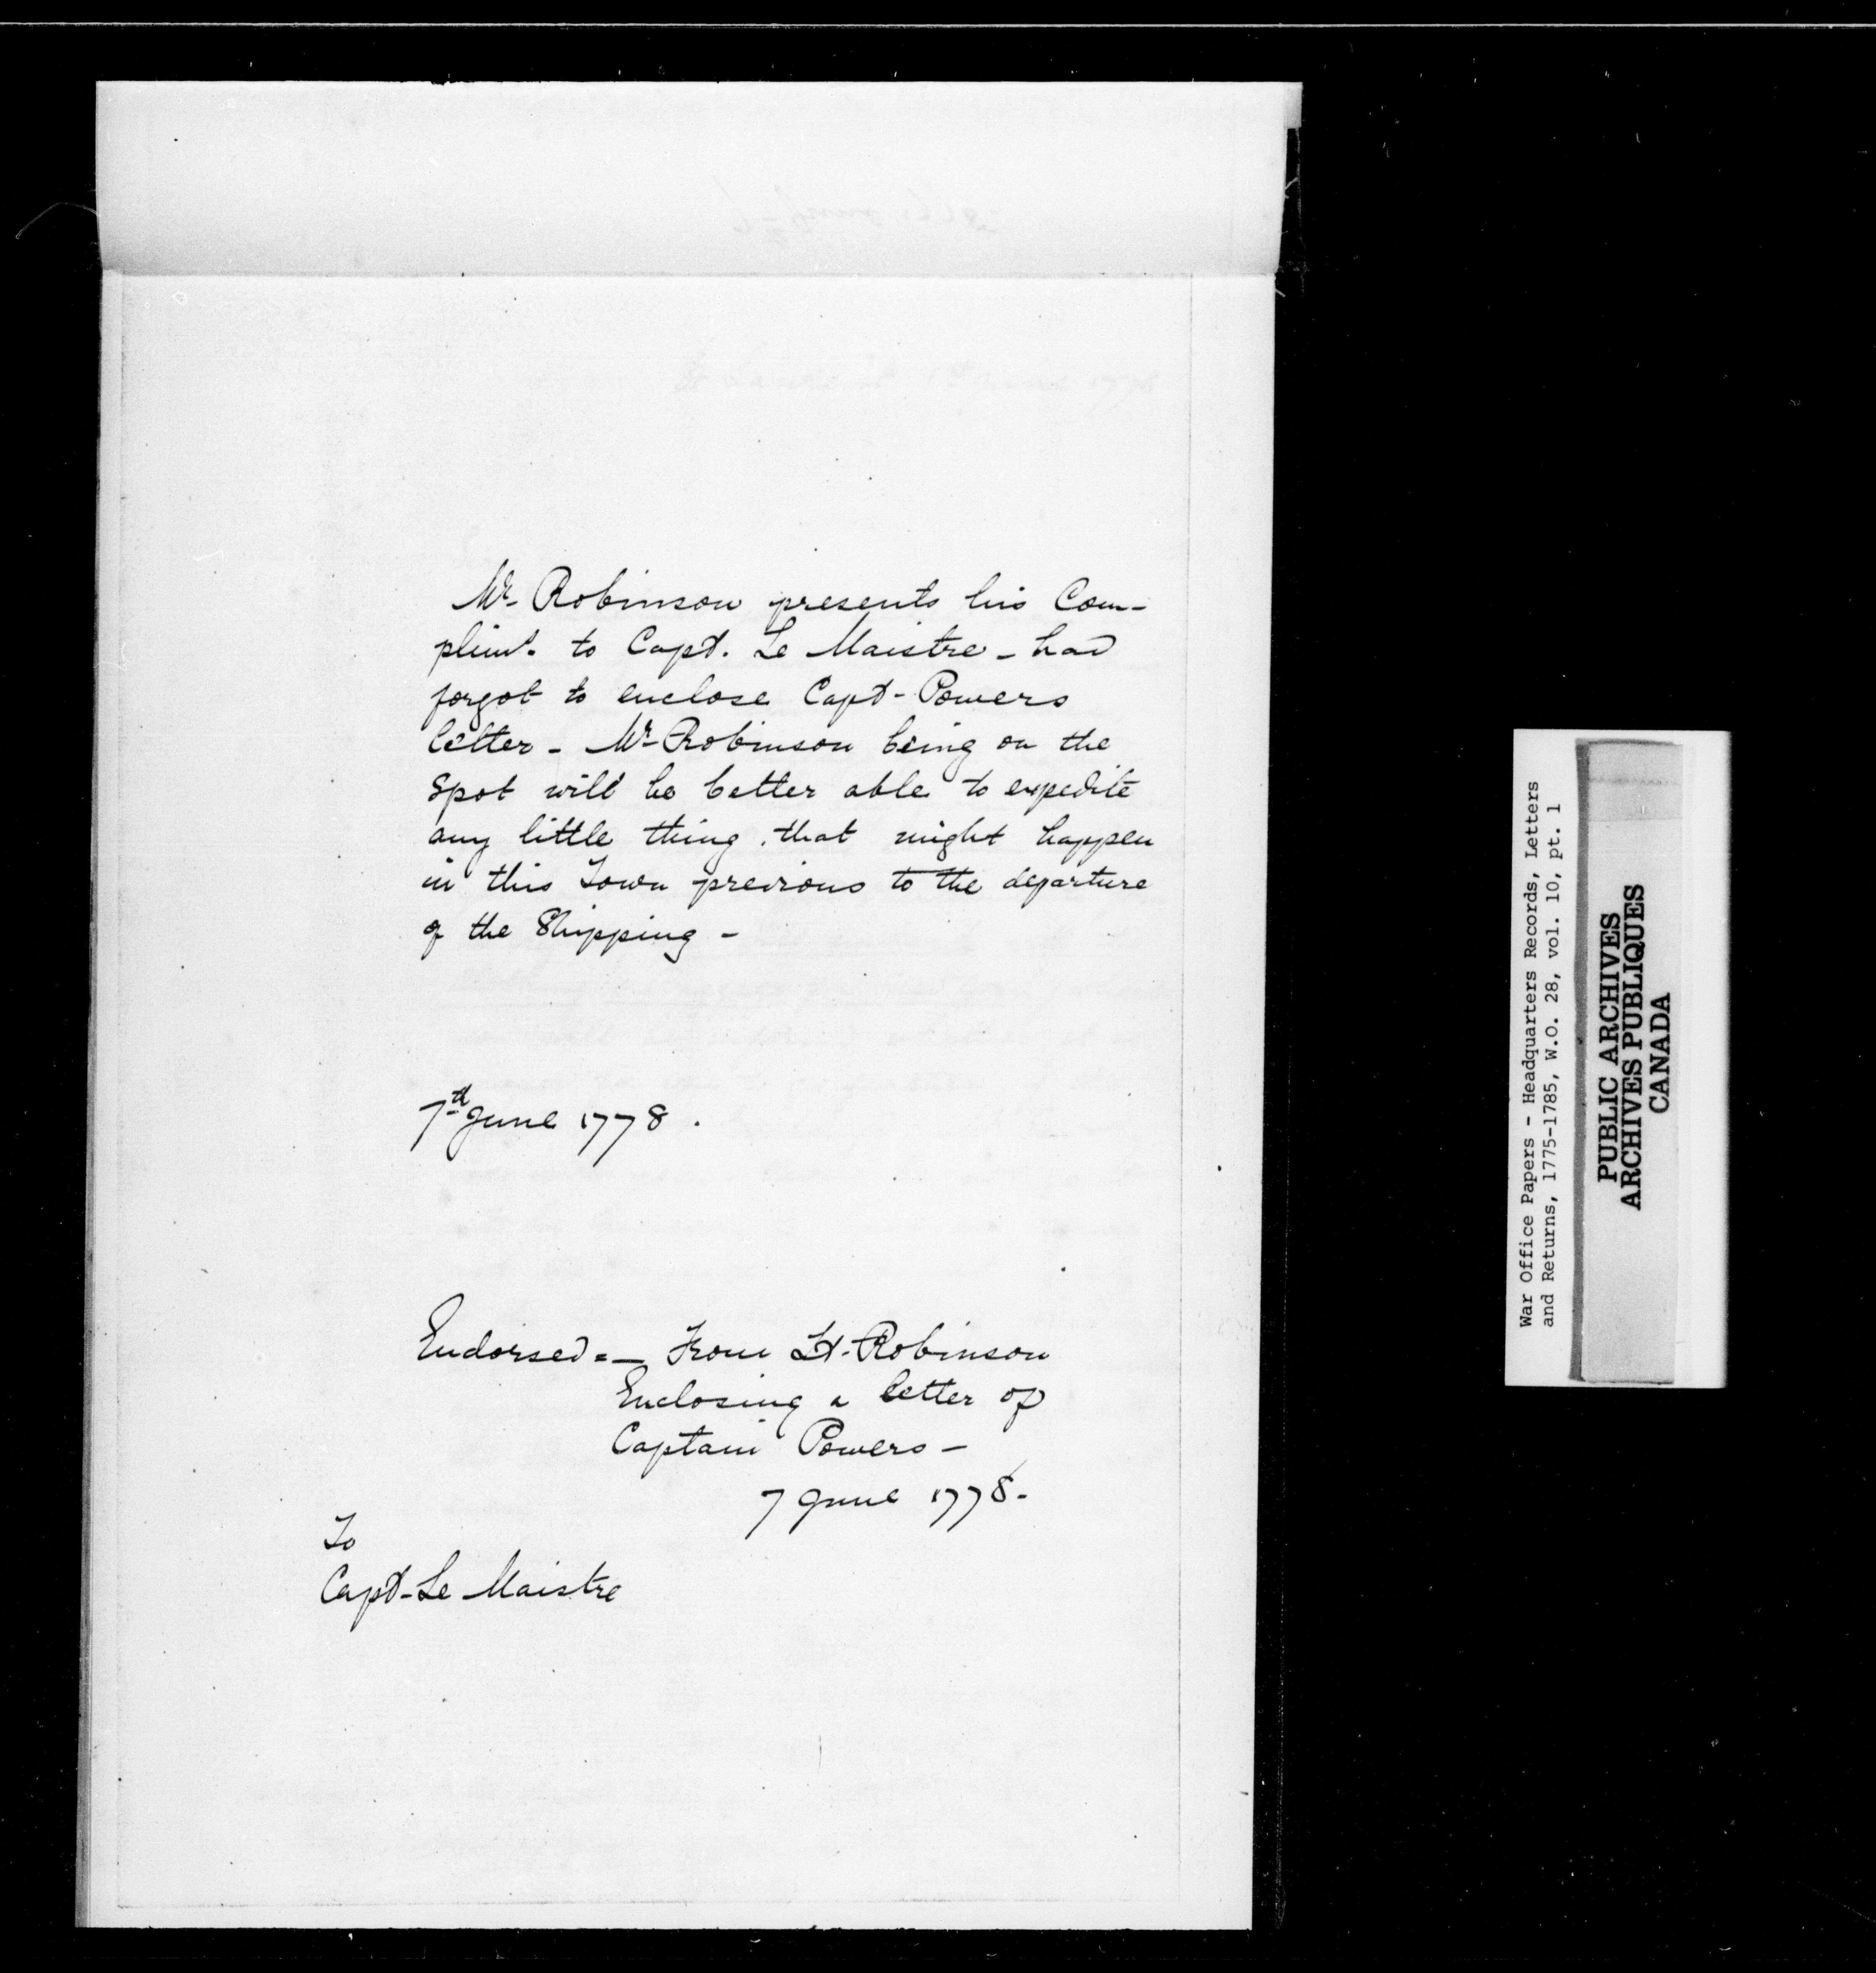 Mr. Robinson presents his Com-
plimt. to Capt. Le Maistre - had
forgot to enclose Capt - Powers
letter - Mr Robinson being on the
Spot will be better able to expedite
any little thing that might happen
in this Town previous to the departure
of the Shipping -
7th June 1778.
Endorsed = - From Lt. Robinson
Enclosing a letter of
Captain Powers -
7 June 1778.
To
Capt - Le Maistre
War Office Papers - Headquarters Records, Letters
and Returns, 1775-1785, W.O. 28, vol. 10, pt. 1
PUBLIC ARCHIVES
ARCHIVES PUBLIQUES
CANADA